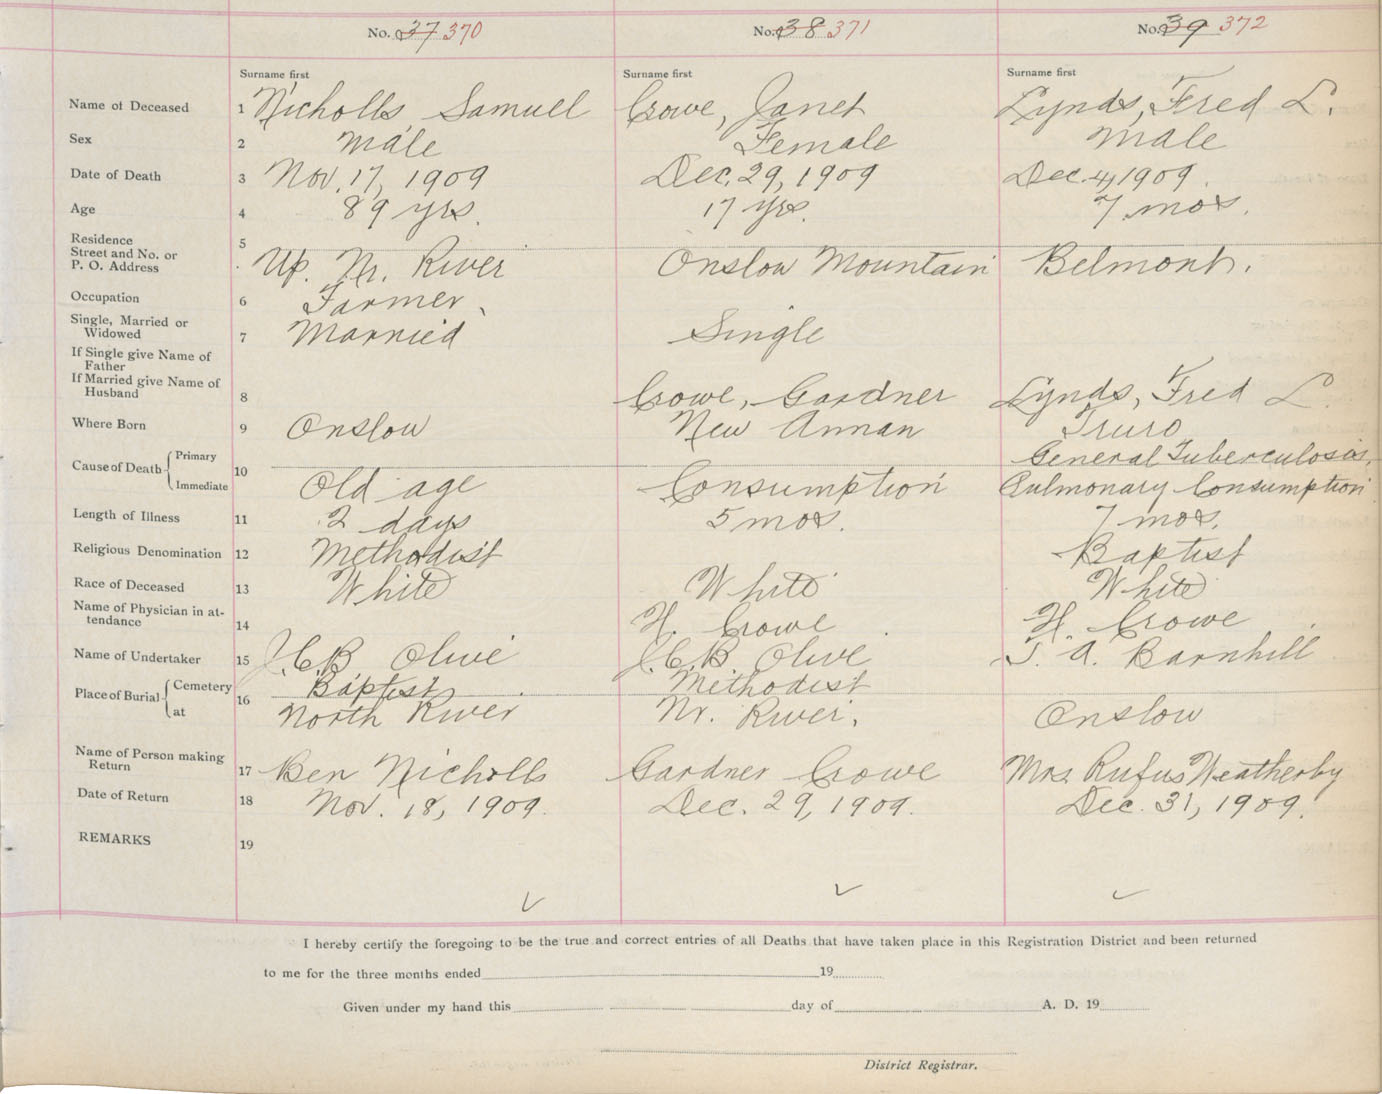 No. 37 370 No. 38 371 No. 39 372
Surname first Surname first Surname first
Name of Deceased 1 Nicholls, Samuel Crowe, Janet Lynds, Fred L.
Sex 2 Male Female Male
Date of Death 3 Nov. 17, 1909 Dec. 29, 1909 Dec. 4, 1909.
Age 4 89 yrs. 17 yrs. 7 mos.
Residence 5
Street and No. or
P. O. Address Up. Nr. River Onslow Mountain Belmont.
Occupation 6 Farmer
Single, Married or
Widowed 7 Married Single
If Single give Name of
Father
If Married give Name of
Husband 8 Crowe, Gardner Lynds, Fred L.
Where Born 9 Onslow New Annan Truro
Cause of Death Primary 10 General Tuberculosis,
Immediate Old age Consumption Pulmonary Consumption
Length of Illness 11 2 days 5 mos. 7 mos.
Religious Denomination 12 Methodist Baptist
Race of Deceased 13 White White White
Name of Physician in at-
tendance 14 H. Crowe H. Crowe
Name of Undertaker 15 J.C.B. Olive J.C.B. Olive J. A. Barnhill
Place of Burial Cemetery 16 Baptist Methodist
at North River Nr. River. Onslow
Name of Person making
Return 17 Ben Nicholls Gardner Crowe Mrs. Rufus Weatherby
Date of Return 18 Nov. 18, 1909. Dec. 29, 1909. Dec. 31, 1909.
REMARKS 19
I hereby certify the foregoing to be the true and correct entries of all Deaths that have taken place in this Registration District and been returned
to me for the three months ended 19
Given under my hand this day of A. D. 19
District Registrar.